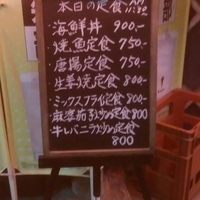 本日の定食
海鮮丼 900-
焼魚定食 750-
唐揚定食 750-
生姜焼定食 800-
ミックスフライ定食 800-
麻婆茄子炒め定食 800-
牛レバニラ炒め定食
800